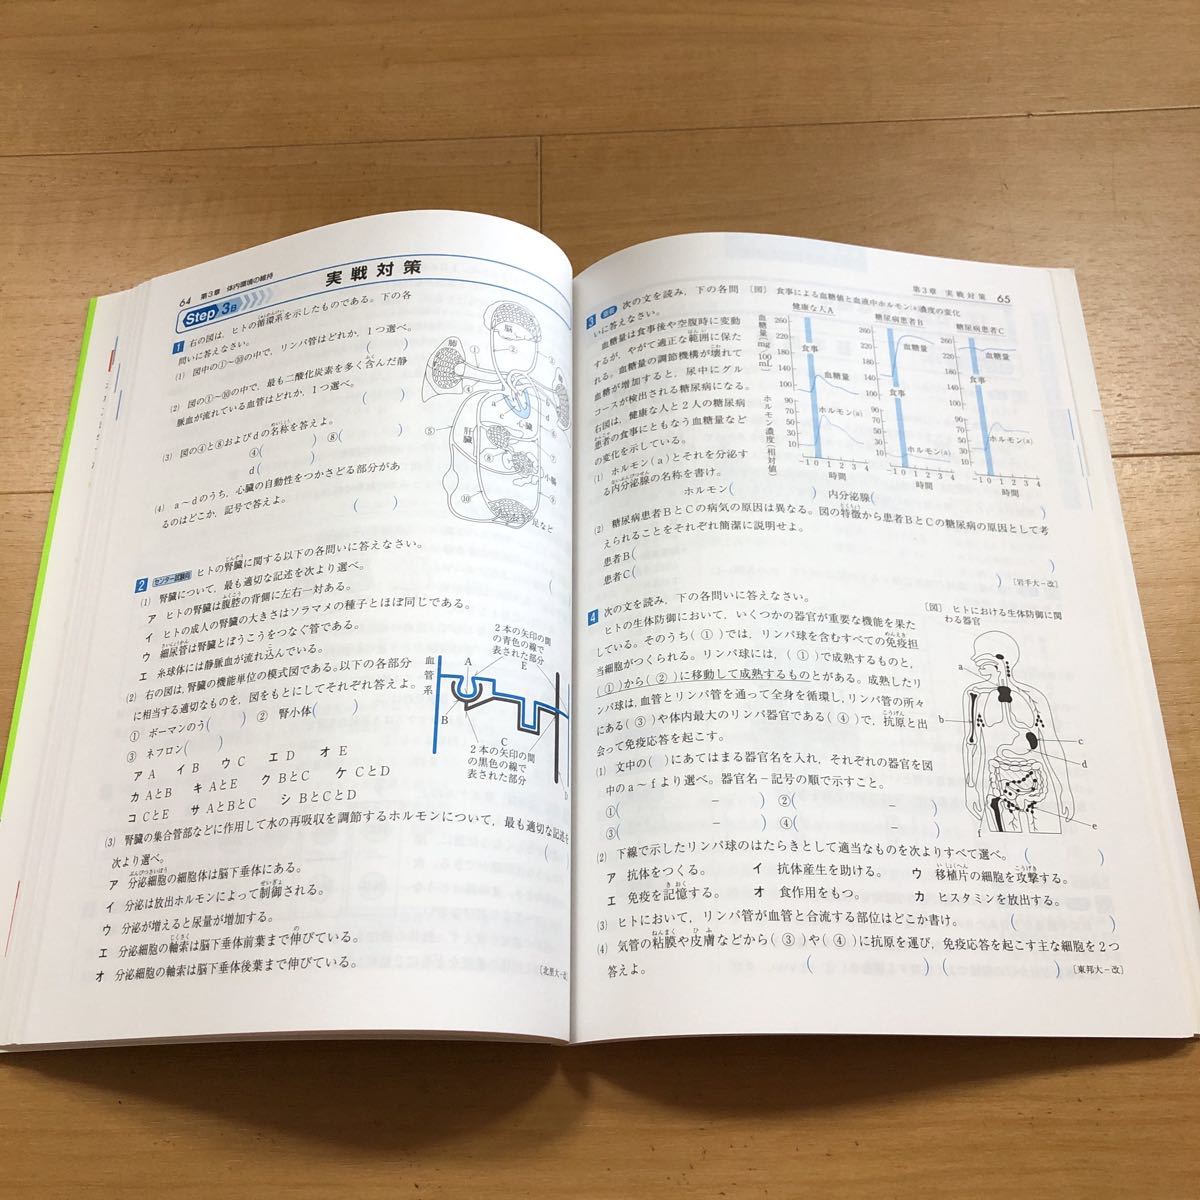 64 第3章 体内環境の維持
実戦対策
Step 3B
1 右の図は，ヒトの循環系を示したものである。下の各
問いに答えなさい。
(1) 図中の①~⑩の中で，リンパ管はどれか，1つ選べ。
( )
(2) 図の①~⑩の中で，最も二酸化炭素を多く含んだ静
脈血が流れている血管はどれか，1つ選べ。
( )
(3) 図の④と⑧およびdの名称を答えよ。
④( ) ⑧( )
d( )
(4) a~dのうち，心臓の自動性をつかさどる部分があ
るのはどこか，記号で答えよ。 ( )
脳
肺
心臓
肝臓
小腸
足など
2 センター試験向 ヒトの腎臓に関する以下の各問いに答えなさい。
(1) 腎臓について，最も適切な記述を次より選べ。 (
ア ヒトの腎臓は腹腔の背側に左右一対ある。
イ ヒトの成人の腎臓の大きさはソラマメの種子とほぼ同じである。
ウ 細尿管は腎臓とぼうこうをつなぐ管である。
エ 糸球体には静脈血が流れ込んでいる。
(2) 右の図は，腎臓の機能単位の模式図である。以下の各部分
に相当する適切なものを，図をもとにしてそれぞれ答えよ。
① ボーマンのう( ) ② 腎小体( )
③ ネフロン( )
ア A イ B ウ C エ D オ E
カ AとB キ AとE ク BとC ケ CとD
コ CとE サ AとBとC シ BとCとD
2本の矢印の間
の青色の線で
表された部分
血管系
A
E
B
C
2本の矢印の間
の黒色の線で
表された部分
D
(3) 腎臓の集合管部などに作用して水の再吸収を調節するホルモンについて，最も適切な記述を
次より選べ。 (
ア 分泌細胞の細胞体は脳下垂体にある。
イ 分泌は放出ホルモンによって制御される。
ウ 分泌が増えると尿量が増加する。
エ 分泌細胞の軸索は脳下垂体前葉まで伸びている。
オ 分泌細胞の軸索は脳下垂体後葉まで伸びている。
第3章 実戦対策 65
3 次の文を読み，下の各問
いに答えなさい。
血糖量は食事後や空腹時に変動
するが，やがて適正な範囲に保た
れる。血糖量の調節機構が壊れて
血糖が増加すると，尿中にグル
コースが検出される糖尿病になる。
右図は，健康な人と2人の糖尿病
患者の食事にともなう血糖量など
の変化を示している。
(1) ホルモン(a)とそれを分泌す
る内分泌腺の名称を書け。
ホルモン( ) 内分泌腺( )
〔図〕 食事による血糖値と血液中ホルモンa濃度の変化
健康な人A 糖尿病患者B 糖尿病患者C
血糖量(mg/100mL)
260
220
180
140
100
食事
血糖量
ホルモン濃度(相対値)
90
70
50
30
10
ホルモン(a)
-1 0 1 2 3 4
時間
(2) 糖尿病患者BとCの病気の原因は異なる。図の特徴から患者BとCの糖尿病の原因として考
えられることをそれぞれ簡潔に説明せよ。
患者B( )
患者C( )
〔岩手大-改〕
4 次の文を読み，下の各問いに答えなさい。
ヒトの生体防御において，いくつかの器官が重要な機能を果た
している。そのうち( ① )では，リンパ球を含むすべての免疫担
当細胞がつくられる。リンパ球には，( ① )で成熟するものと，
( ① )から( ② )に移動して成熟するものとがある。成熟したリ
ンパ球は，血管とリンパ管を通って全身を循環し，リンパ管の所々
にある( ③ )や体内最大のリンパ器官である( ④ )で，抗原と出
会って免疫応答を起こす。
〔図〕 ヒトにおける生体防御に関
わる器官
a
b
c
d
e
(1) 文中の( )にあてはまる器官名を入れ，それぞれの器官を図
中のa~fより選べ。器官名-記号の順で示すこと。
①( - ) ②( - )
③( - ) ④( - )
(2) 下線で示したリンパ球のはたらきとして適当なものを次よりすべて選べ。 ( )
ア 抗体をつくる。 イ 抗体産生を助ける。 ウ 移植片の細胞を攻撃する。
エ 免疫を記憶する。 オ 食作用をもつ。 カ ヒスタミンを放出する。
(3) ヒトにおいて，リンパ管が血管と合流する部位はどこか書け。 ( )
(4) 気管の粘膜や皮膚などから( ③ )や( ④ )に抗原を運び，免疫応答を起こす主な細胞を2つ
答えよ。 ( ) ( )
〔東邦大-改〕